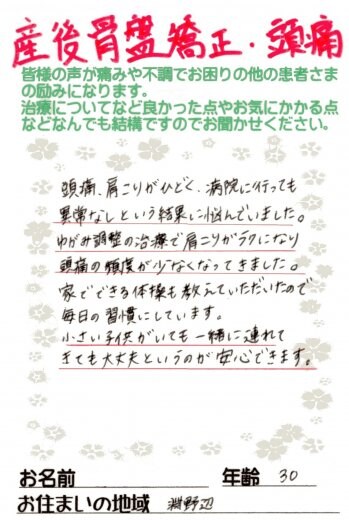 産後骨盤矯正・頭痛
皆様の声が痛みや不調でお困りの他の患者さま
の励みになります。
治療についてなど良かった点やお気にかかる点
などなんでも結構ですのでお聞かせください。
頭痛、肩こりがひどく、病院に行っても
異常なしという結果に悩んでいました。
ゆがみ調整の治療で肩こりがラクになり
頭痛の頻度が少なくなってきました。
家でできる体操も教えていただいたので
毎日の習慣にしています。
小さい子供がいても一緒に連れて
きても大丈夫というのが安心できます。
お名前 年齢 30
お住まいの地域 淵野辺